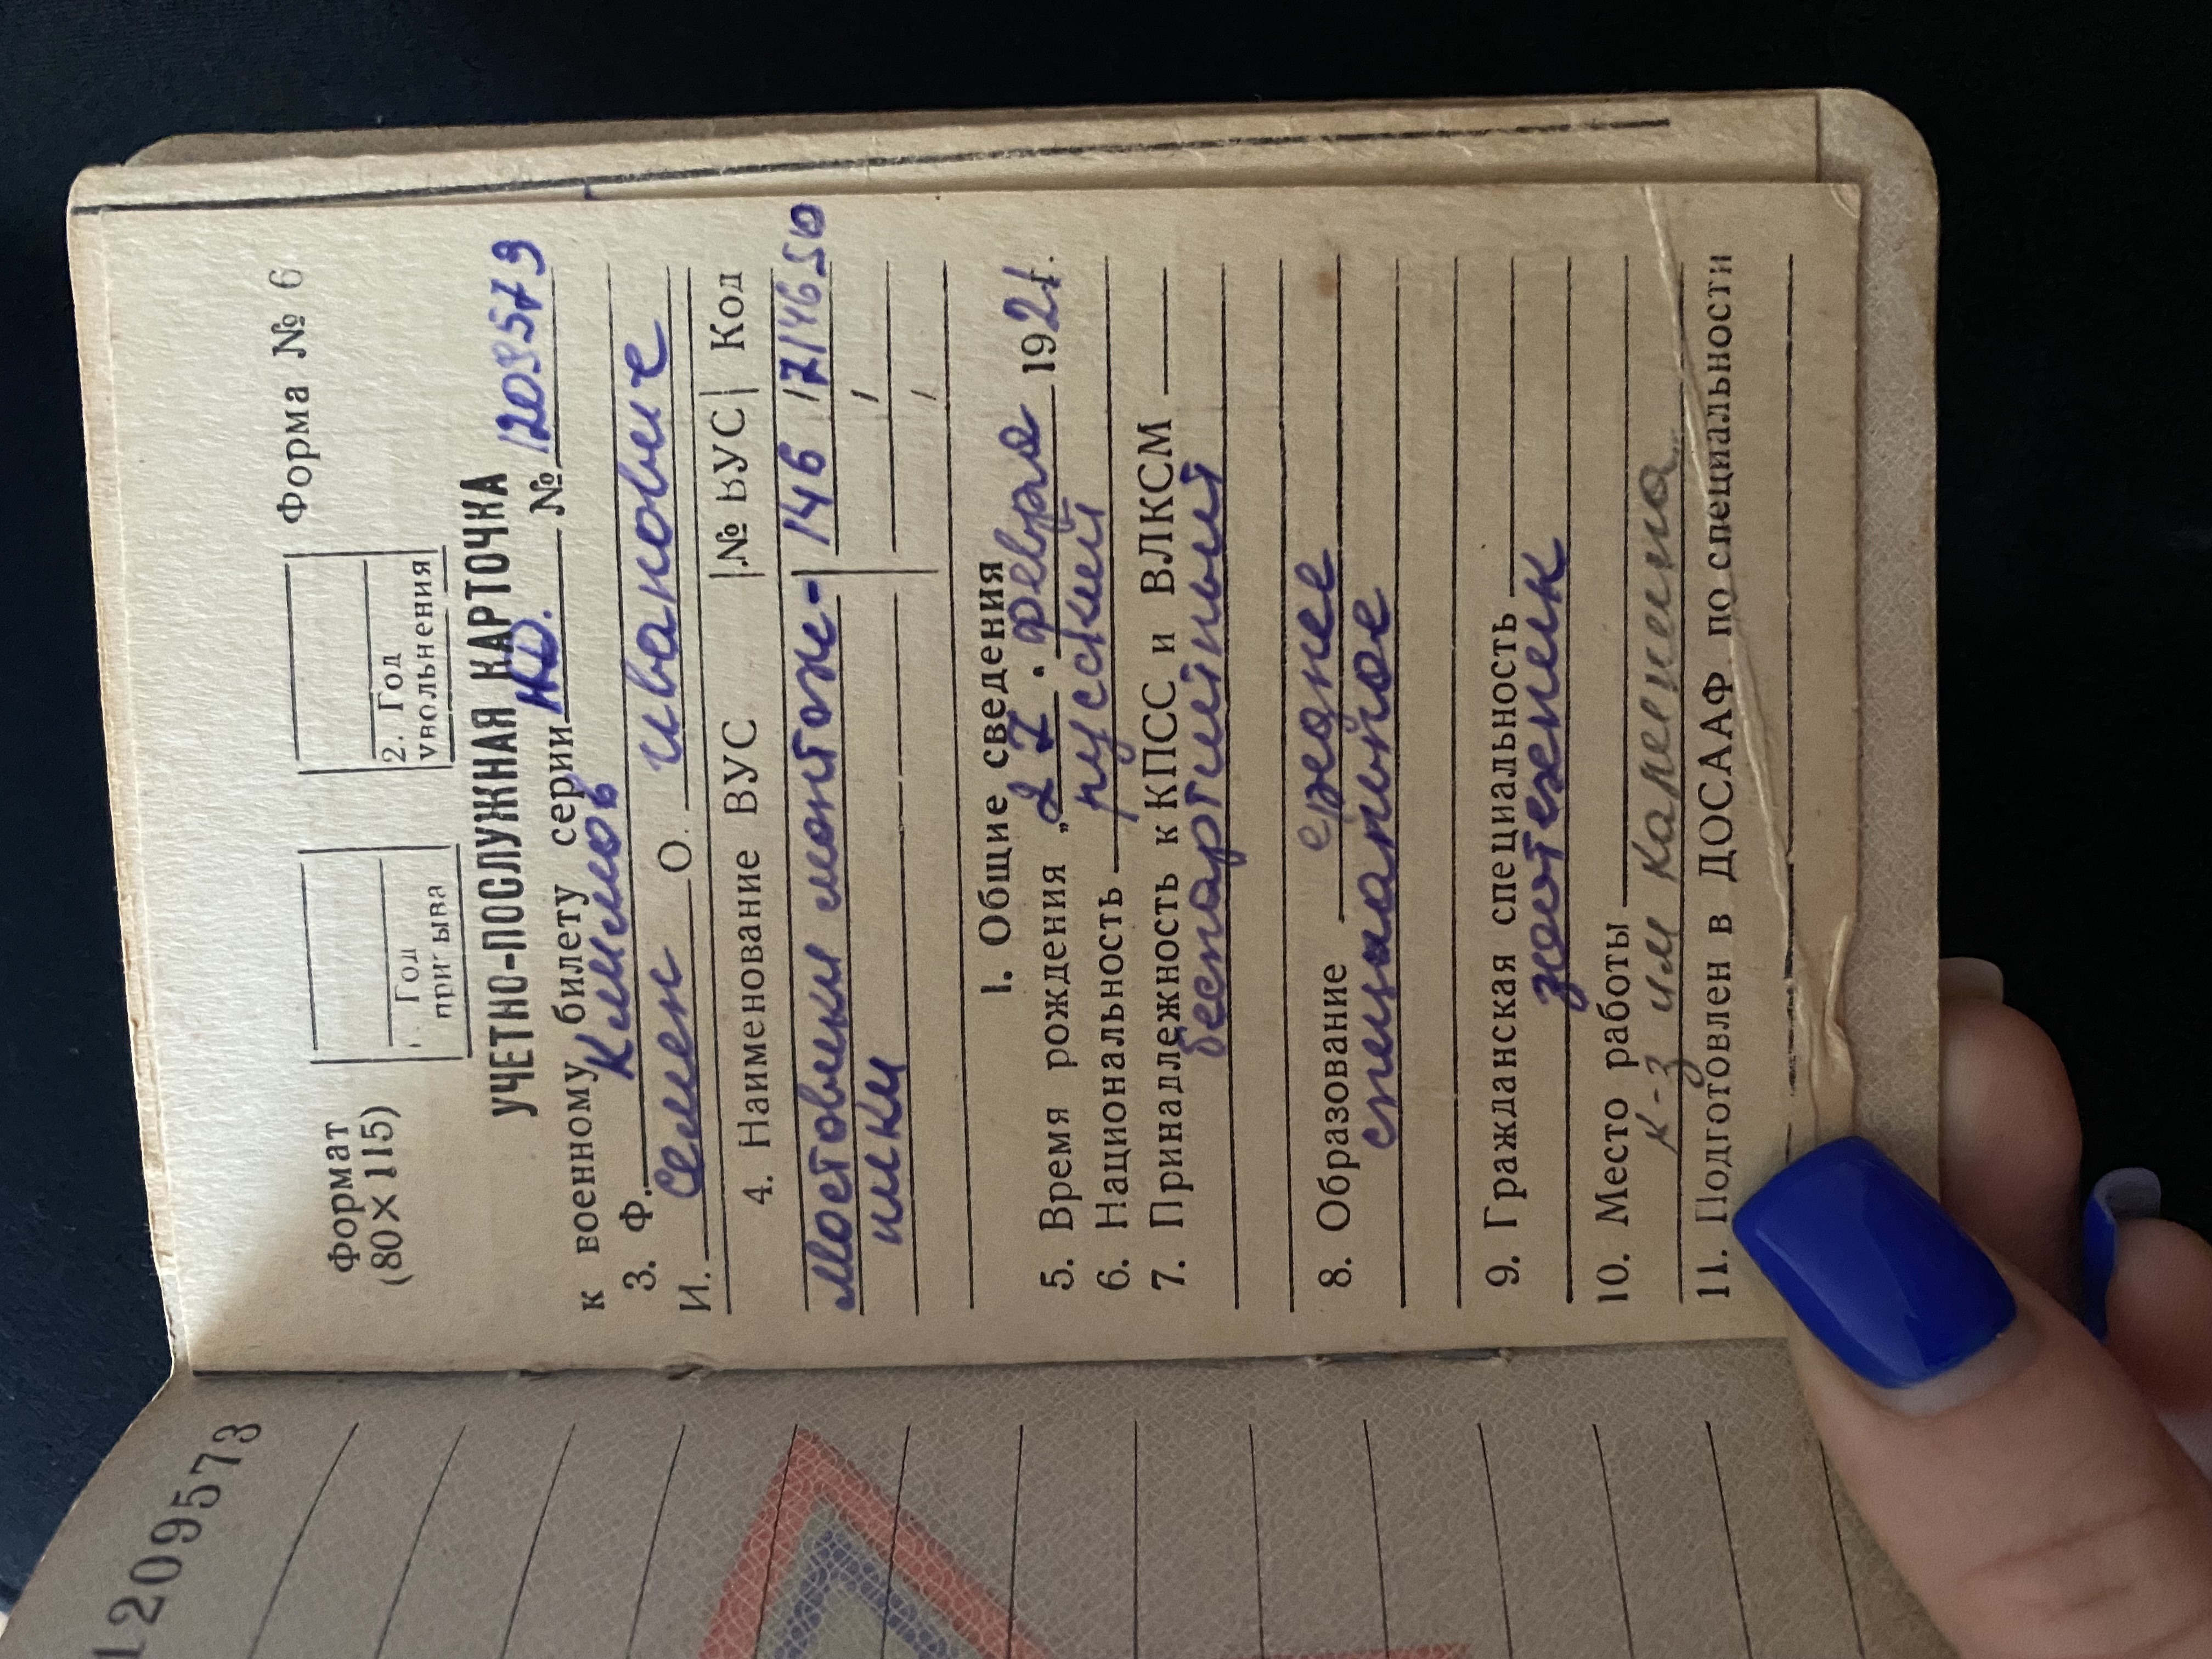 1209573
Формат
(80×115)
Форма № 6
Год
призыва
2. Год
увольнения
УЧЕТНО-ПОСЛУЖНАЯ КАРТОЧКА
к военному билету серии НО. № 1209573
3. Ф. Климов
И. Семен О. иванович
4. Наименование ВУС № ВУС Код
Мостовики монтаж- 146
ники
I. Общие сведения
5. Время рождения „27. февра 1921.
6. Национальность русский
7. Принадлежность к КПСС и ВЛКСМ
беспартийный
8. Образование средне
специальное
9. Гражданская специальность
зоотехник
10. Место работы
к-з им Калинина
11. Подготовлен в ДОСААФ по специальности